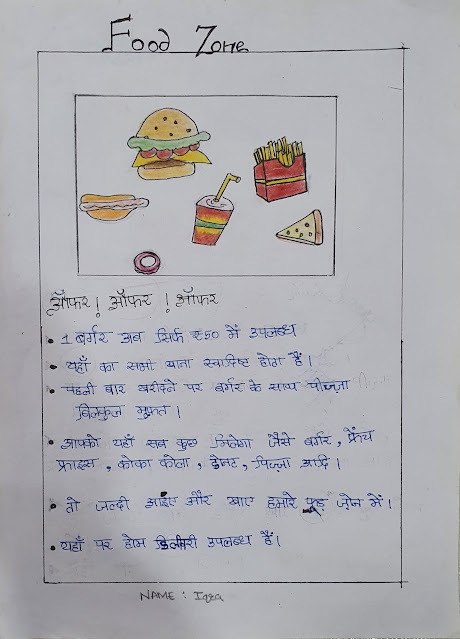 Food Zone
ऑफर! ऑफर! ऑफर
• 1 बर्गर अब सिर्फ ₹50 में उपलब्ध
• यहाँ का सभी खाना स्वादिष्ट होता हैं।
• पहली बार खरीदने पर बर्गर के साथ पीज़्ज़ा
बिलकुल मुफ़्त।
• आपको यहाँ सब कुछ मिलेगा जैसे बर्गर, फ्रेंच
फ्राइस, कोका कोला, डोनट, पिज़्ज़ा आदि।
• तो जल्दी आईए और खाए हमारे फूड ज़ोन में।
• यहाँ पर होम डिलीवरी उपलब्ध हैं।
NAME : Iqra